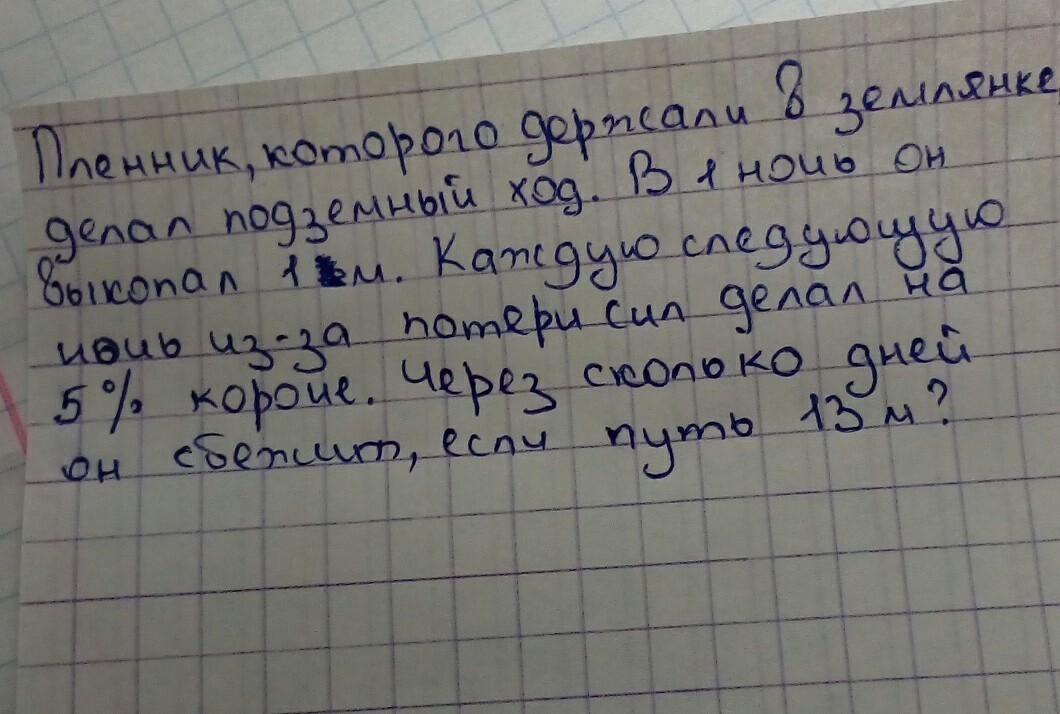 Пленник, которого держали в землянке
делал подземный ход. В 1 ночь он
выкопал 1 м. Каждую следующую
ночь из-за потери сил делал на
5% короче. Через сколько дней
он сбежит, если путь 13 м?